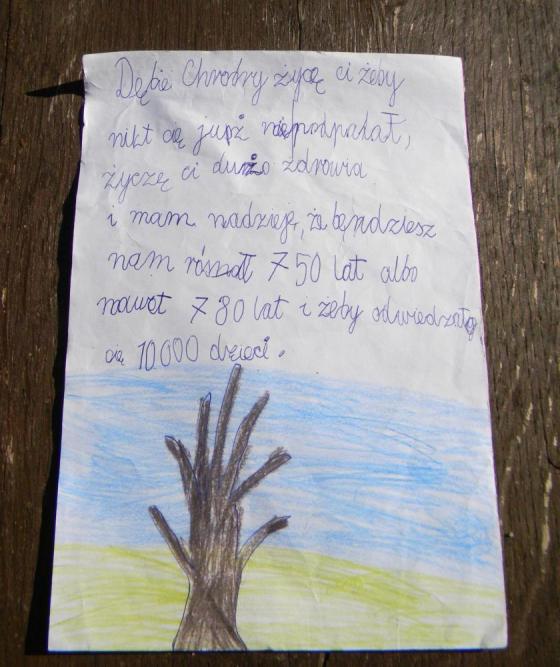 Dębie Chrobry życzę ci żeby
nikt cię jusz niepodpalał,
życzę ci dużo zdrowia
i mam nadzieję, że bęndziesz
nam rósnoł 750 lat albo
nawet 780 lat i żeby odwiedzało
cię 10000 dzieci.